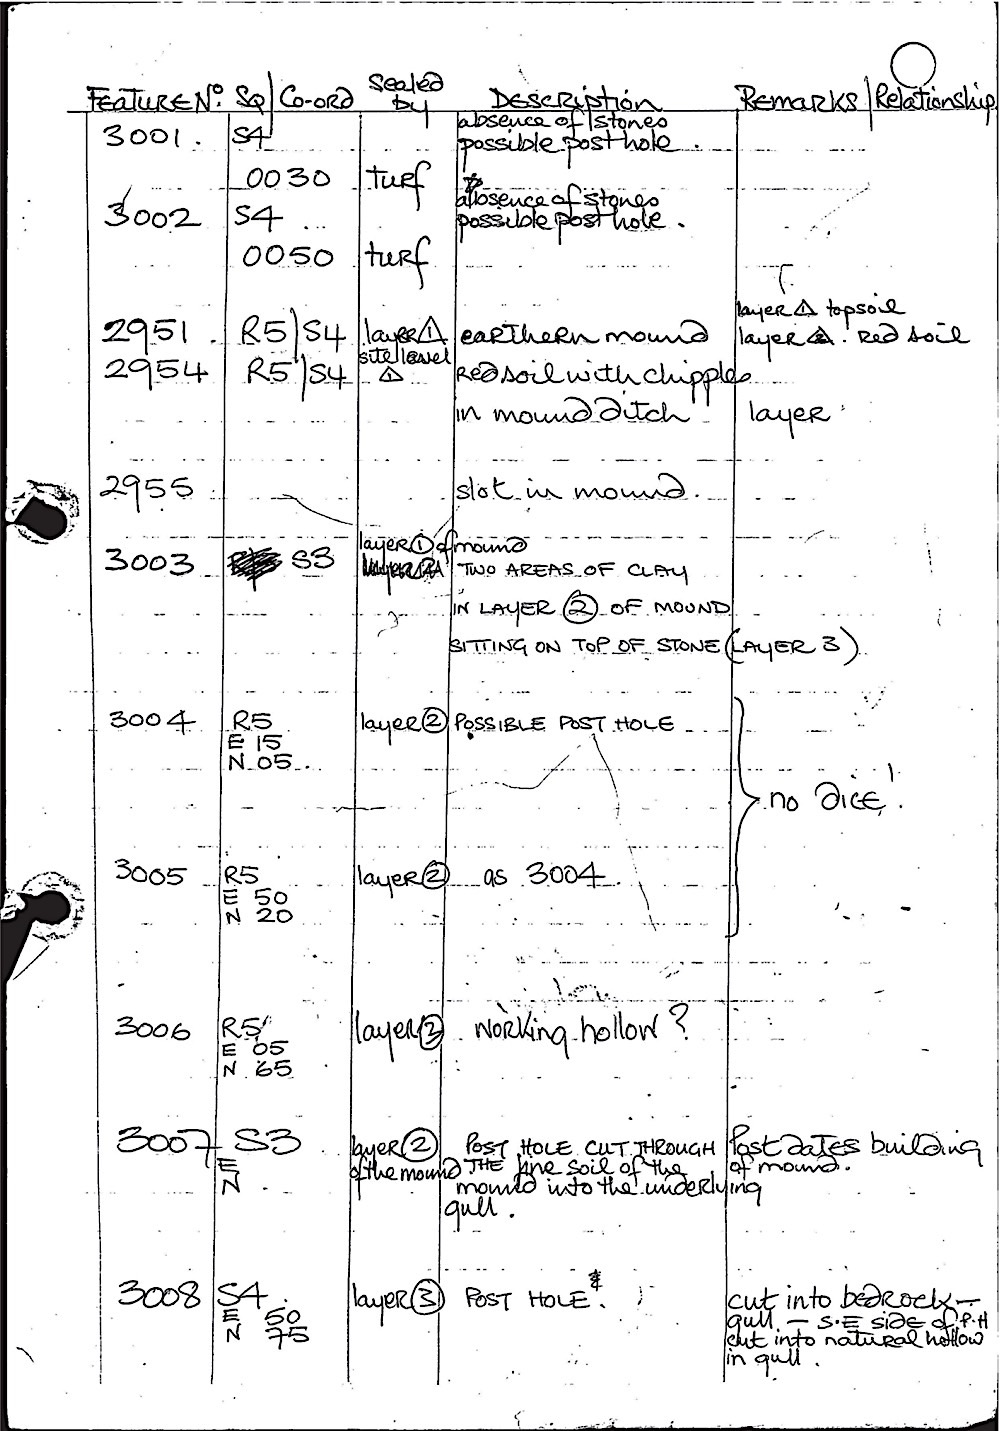 FEATURE No. SQ/Co-ord Sealed by DESCRIPTION REMARKS/Relationship
3001. S4 absence of stones
possible post hole.
0030 turf
3002 S4 absence of stones
possible post hole.
0050 turf
layer 1 topsoil
2951. R5/S4 layer 1 earthern mound layer 2. Red soil
site level
2954 R5/S4 1 Red soil with chipples
in mound ditch layer
2955 slot in mound.
layer 1 of mound
3003 S3 TWO AREAS OF CLAY
IN LAYER 2 OF MOUND
SITTING ON TOP OF STONE (LAYER 3)
3004 R5 layer 2 POSSIBLE POST HOLE
E 15
N 05.
no dice!
3005 R5 layer 2 as 3004
E 50
N 20
3006 R5 layer working hollow?
E 05
N 65
3007 S3 layer 2 POST HOLE CUT THROUGH Post dates building
E of the mound THE fine soil of the of mound.
N mound into the underlying
gull.
3008 S4 layer 3 POST HOLE. cut into bedrock –
E 50 gull. – S.E side of P.H
N 75 cut into natural hollow
in gull.